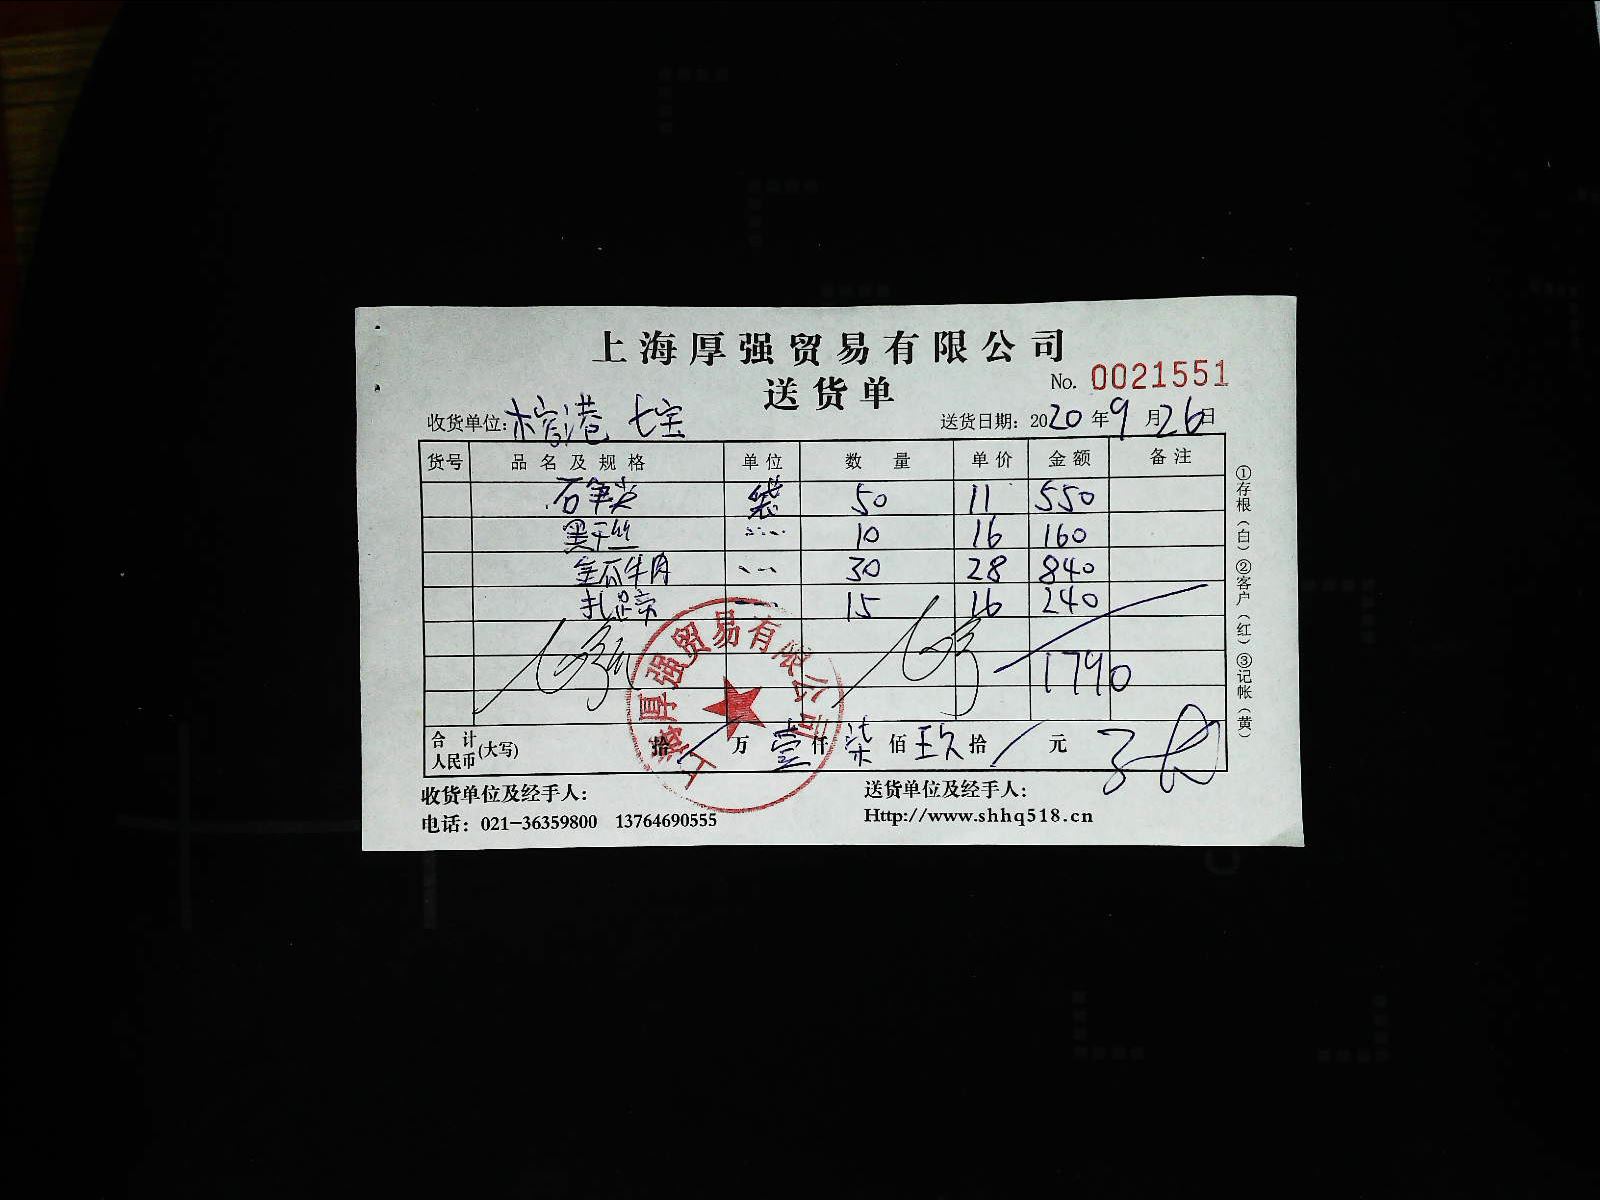 上海厚强贸易有限公司
送货单
No. 0021551
收货单位: 七宝
送货日期: 2020年9月26日
货号 品名及规格 单位 数量 单价 金额 备注
石笋尖 袋 50 11 550
黑干丝 10 16 160
金瓜牛肉 30 28 840
扎 16 15 240
1790
合计人民币(大写) 拾 / 万 壹 仟 柒 佰 玖 拾 / 元
收货单位及经手人:
送货单位及经手人:
电话: 021-36359800 13764690555
Http://www.shhq518.cn
①存根(白)②客户(红)③记帐(黄)
上海厚强贸易有限公司